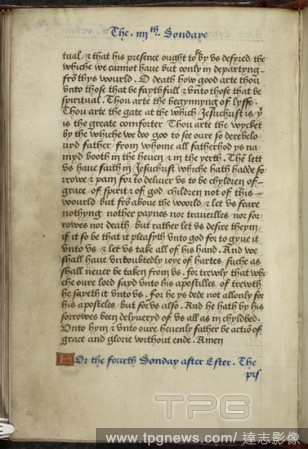 The iiijth. Sondaye
tual, & that his presence ought to be by us desyred, the
whiche we cannot have but only in departyng-
fro thys wourld. O death how good arte thou
unto those that be faythfull & unto those that be
spiritual. Thou arte the begynnyng of lyffe.
Thou arte the gate at the which Jesuchrist is, yt
is the greate comforter. Thou arte the wycket
by the whiche we doo goo to see oure so derebelo-
uyd father, from whome all fatherhod ys na-
myd booth in the heuen & in the yerth. The lett
us have faith in Jesuchrist which hath hadde so-
rrowe & payn for to deliver us to be chyldren of-
grace, of spirit & of god, children not of this-
wourld but fro above the woorld, & let us feare
nothyng, nother paynes nor travelles nor sor-
rowes nor death, but rather let us desire theym,
if it so be that it pleasyth unto god for to gyue it
unto vs, & let vs take all of his hand. And we
shall haue vndoubtedly ioye of hartes, suche as
shall never be taken from vs. for trewly that whi-
che oure lord sayd vnto his apostilles of trewth
he sayeth it vnto vs. for he ys dede not allonly for
his aposteles but for vs also. And he hath by his
sorrowes been delyveryd of vs all as in chyldbed.
Vnto hym & vnto oure heuenly father be action of
grace and glorie without ende. Amen
For the fourth Sonday after Ester. The
pis
TPG
www.tpgnews.com/達志影像